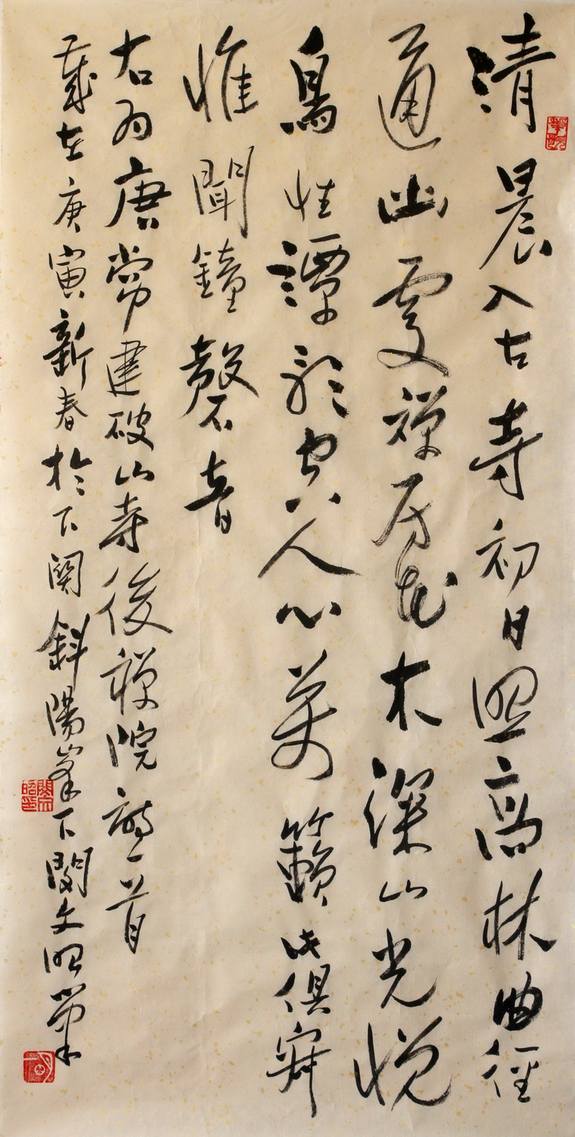 清晨入古寺初日照高林曲徑
通幽處禪房花木深山光悅
鳥性潭影空人心萬籟此俱寂
惟聞鐘磬音
右為唐常建破山寺後禪院詩一首
歲在庚寅新春於下關斜陽峯下閔文昭筆